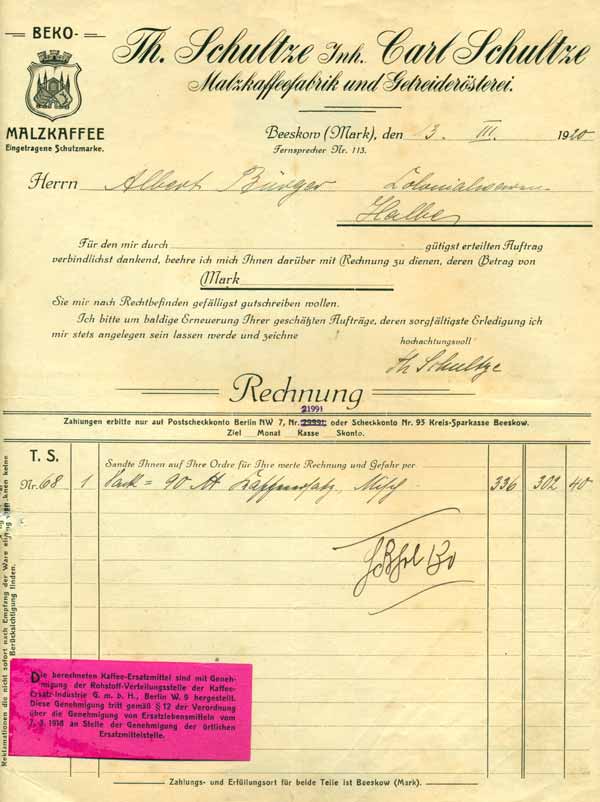 BEKO-
MALZKAFFEE
Eingetragene Schutzmarke.
Th. Schultze Inh. Carl Schultze
Malzkaffeefabrik und Getreiderösterei.
Beeskow (Mark), den 13. III. 1920
Fernsprecher Nr. 113.
Herrn Albert Bürger Colonialwaren
Halbe
Für den mir durch gütigst erteilten Auftrag
verbindlichst dankend, beehre ich mich Ihnen darüber mit Rechnung zu dienen, deren Betrag von
Mark
Sie mir nach Rechtbefinden gefälligst gutschreiben wollen.
Ich bitte um baldige Erneuerung Ihrer geschätzten Aufträge, deren sorgfältigste Erledigung ich
mir stets angelegen sein lassen werde und zeichne
hochachtungsvoll
Th Schultze
Rechnung
21991
Zahlungen erbitte nur auf Postscheckkonto Berlin NW 7, Nr. oder Scheckkonto Nr. 93 Kreis-Sparkasse Beeskow.
Ziel Monat Kasse Skonto.
T. S.
Sandte Ihnen auf Ihre Ordre für Ihre werte Rechnung und Gefahr per
Nr. 68 1 Sack = 90 Kaffeeersatz Misch 336 302 40
Reklamationen die nicht sofort nach Empfang der Ware können keine
Berücksichtigung finden.
Die berechneten Kaffee-Ersatzmittel sind mit Geneh-
migung der Rohstoff-Verteilungsstelle der Kaffee-
Ersatz-Industrie G. m. b. H., Berlin W. 9 hergestellt.
Diese Genehmigung tritt gemäß § 12 der Verordnung
über die Genehmigung von Ersatzlebensmitteln vom
7. 3. 1918 an Stelle der Genehmigung der örtlichen
Ersatzmittelstelle.
Zahlungs- und Erfüllungsort für beide Teile ist Beeskow (Mark).